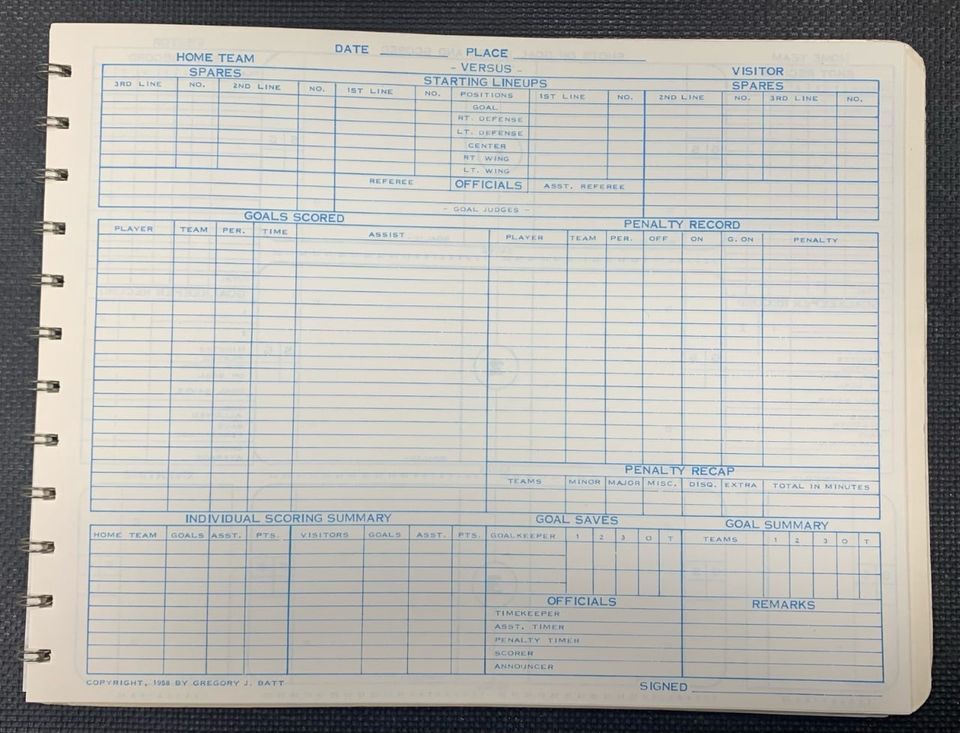 DATE PLACE
HOME TEAM - VERSUS - VISITOR
SPARES STARTING LINEUPS SPARES
3RD LINE NO. 2ND LINE NO. 1ST LINE NO. POSITIONS 1ST LINE NO. 2ND LINE NO. 3RD LINE NO.
GOAL
RT. DEFENSE
LT. DEFENSE
CENTER
RT WING
LT. WING
REFEREE OFFICIALS ASST. REFEREE
- GOAL JUDGES -
GOALS SCORED PENALTY RECORD
PLAYER TEAM PER. TIME ASSIST PLAYER TEAM PER. OFF ON G. ON PENALTY
PENALTY RECAP
TEAMS MINOR MAJOR MISC. DISQ. EXTRA TOTAL IN MINUTES
INDIVIDUAL SCORING SUMMARY GOAL SAVES GOAL SUMMARY
HOME TEAM GOALS ASST. PTS. VISITORS GOALS ASST. PTS. GOALKEEPER 1 2 3 O T TEAMS 1 2 3 O T
OFFICIALS REMARKS
TIMEKEEPER
ASST. TIMER
PENALTY TIMER
SCORER
ANNOUNCER
COPYRIGHT, 1958 BY GREGORY J. BATT SIGNED